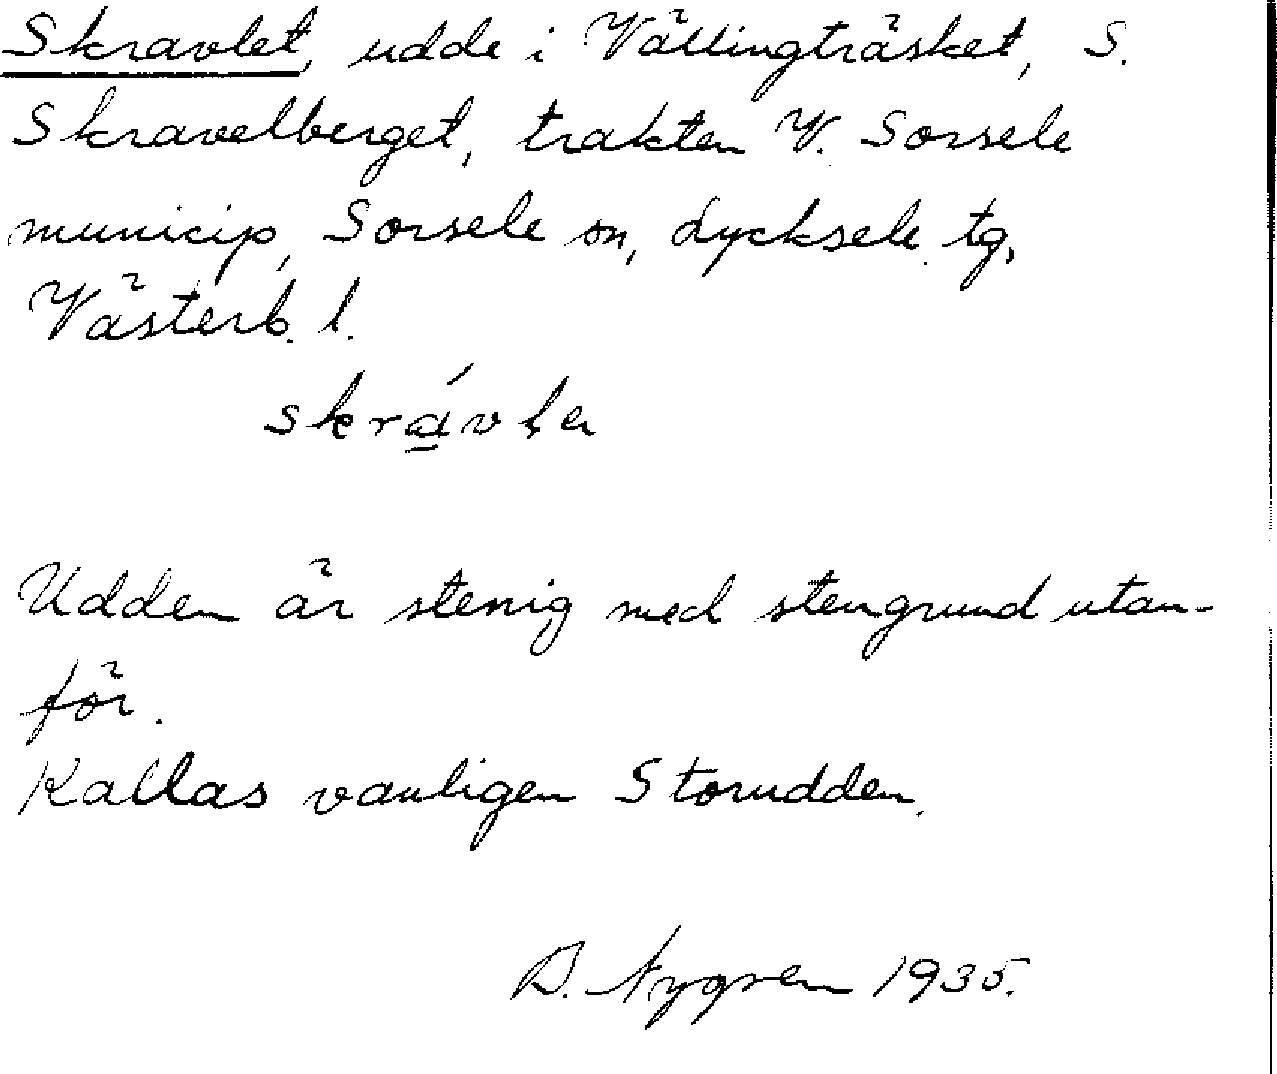 Skravlet, udde i Vällingträsket, S.
Skravelberget, trakten V. Sorsele
municip, Sorsele sn, Lycksele tg,
Västerb. l.
Udden är stenig med stengrund utan-
för.
Kallas vanligen Storudden.
B. Nygren 1935.